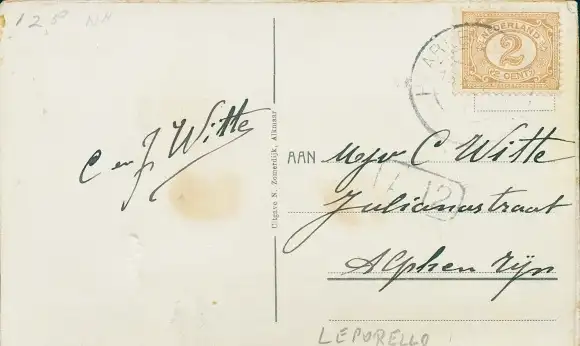 12.50 NN
NEDERLAND
2
CENT
C en J Witte
Uitgave N. Zomerdijk, Alkmaar
AAN Mejv C Witte
Julianastraat
Alphen Rijn
LEPORELLO